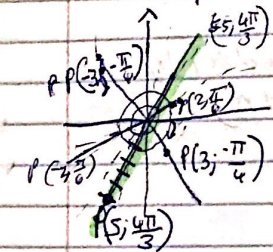 (-5; 4π/3)
P(-3; -π/4)
P(3; π/6)
P(-3; π/6)
P(3; -π/4)
P(5; 4π/3)